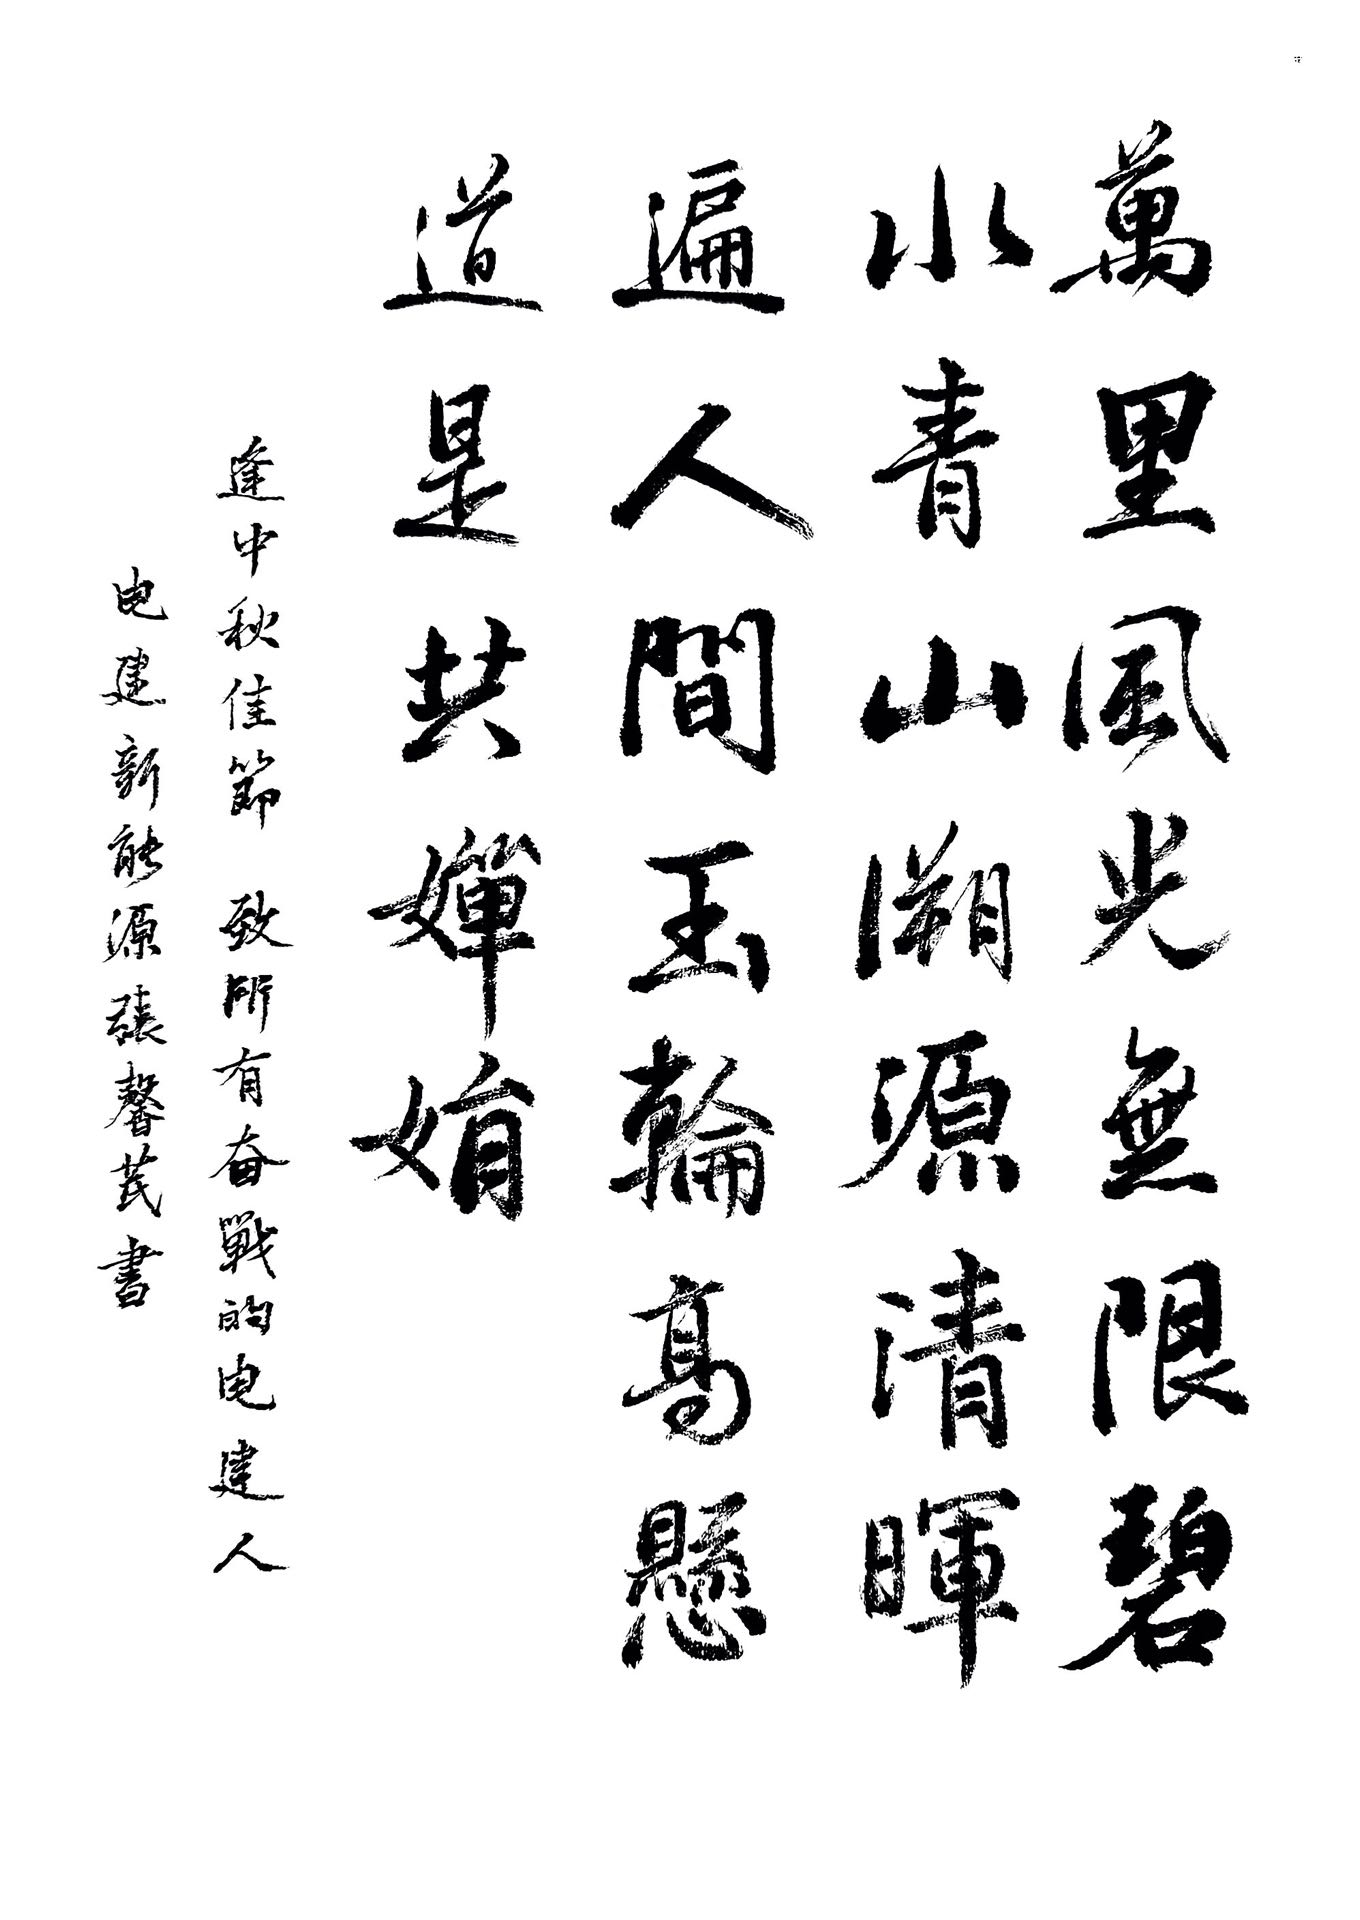 萬里風光無限碧
水青山溯源清暉
遍人間玉輪高懸
道是共嬋娟
逢中秋佳節 致所有奋戰的电建人
电建新能源張馨芪書